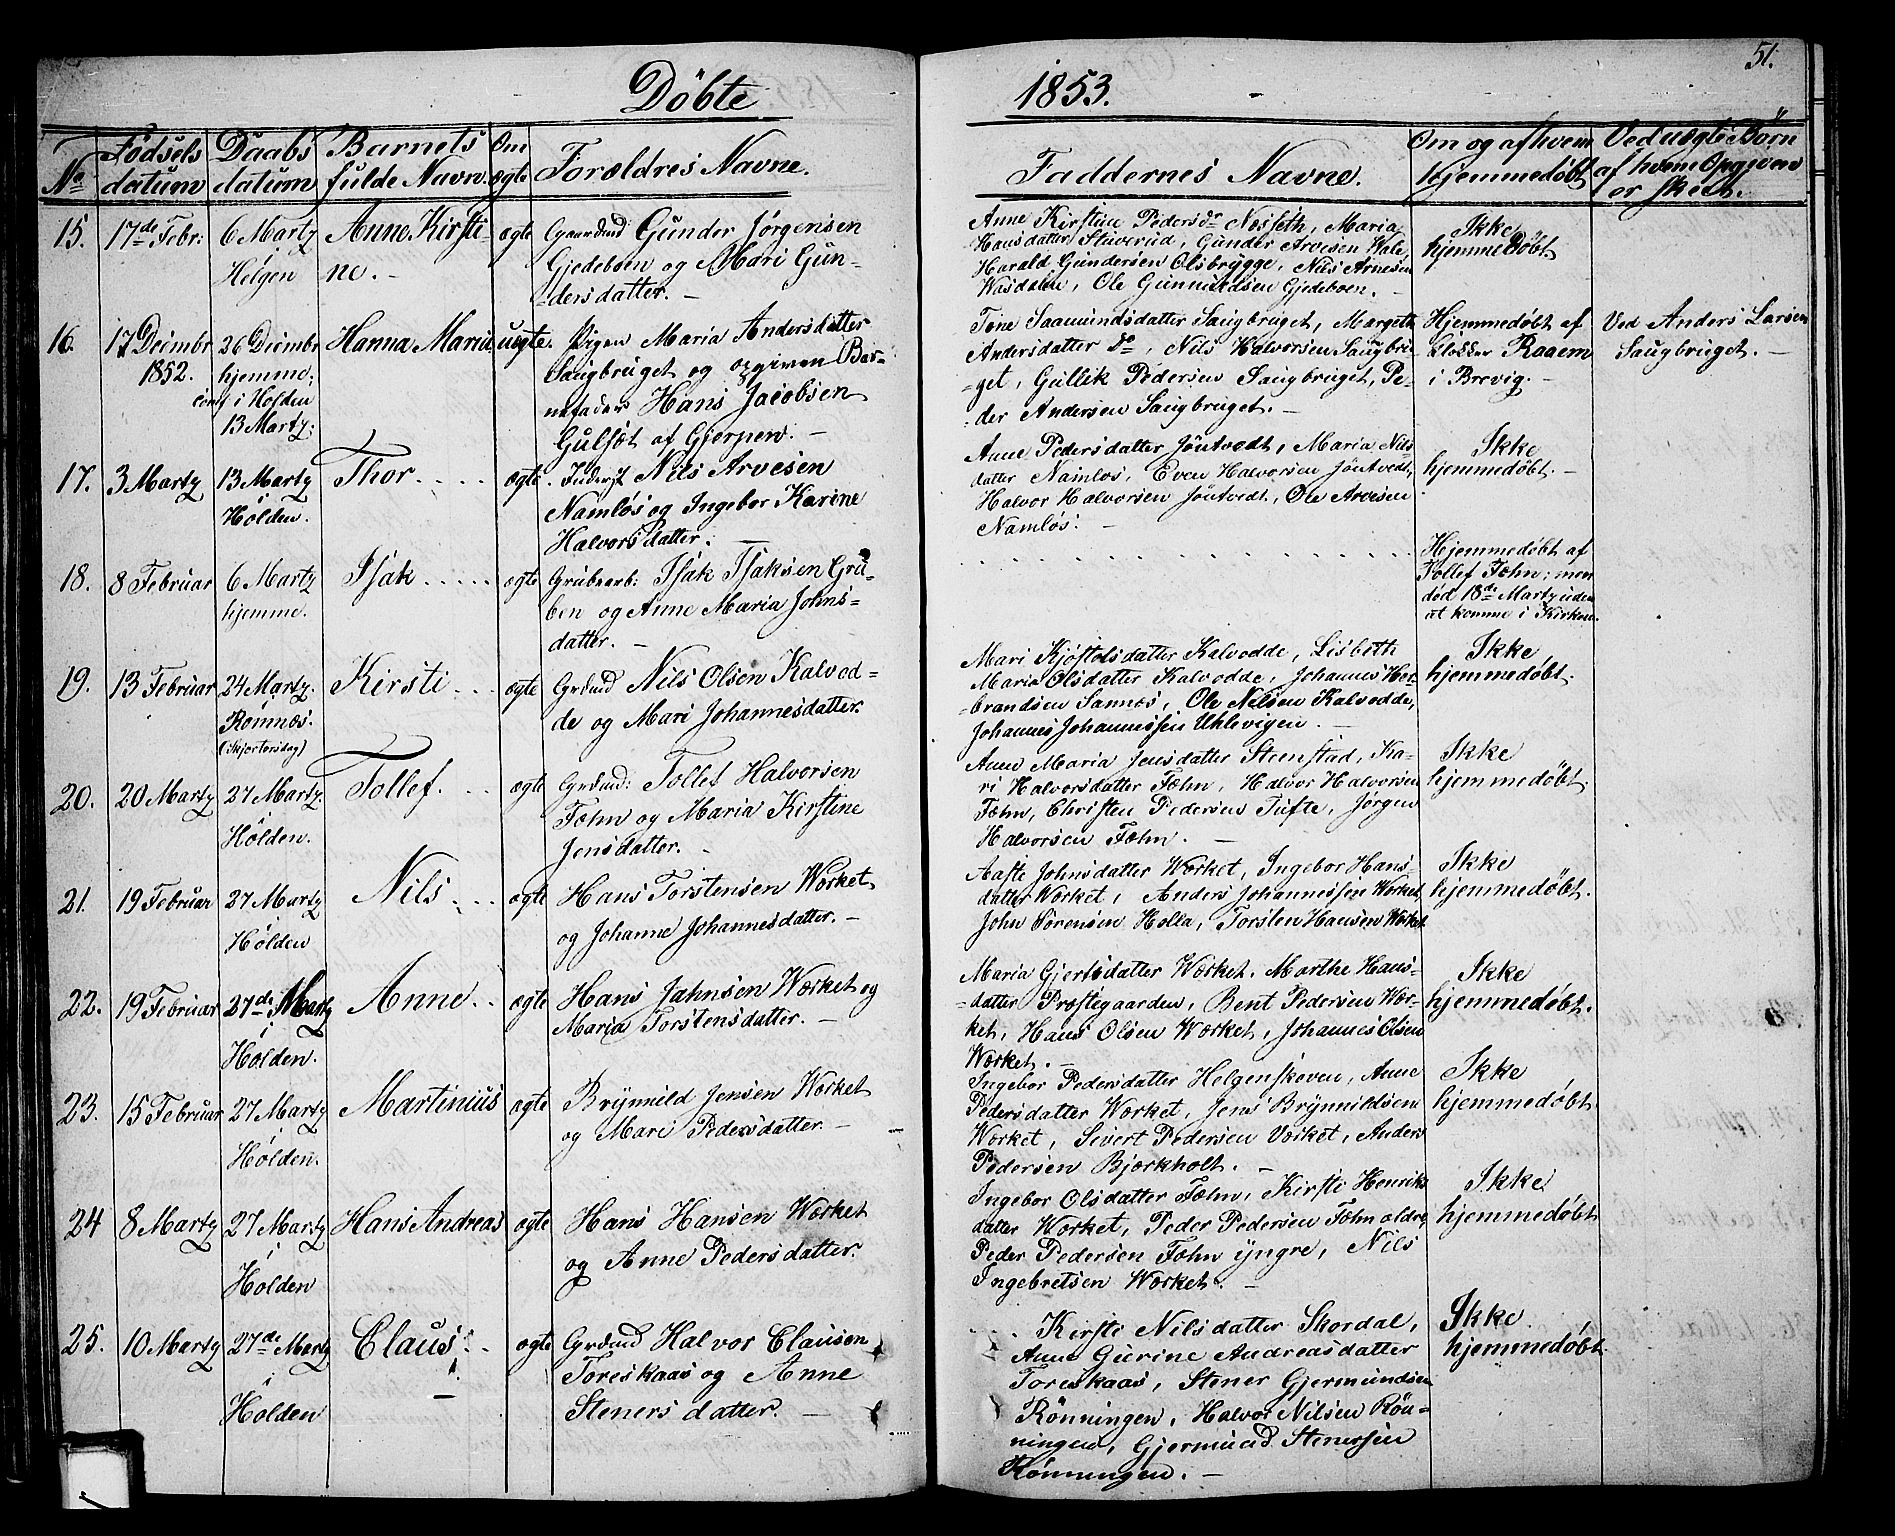 51.
Döbte 1853.
No Födsels datum Daabs datum Barnets fulde Navn Om ægte Forældres Navne. Faddernes Navne. Om og af hvem hjemmedöbt Ved uægte Börn af hvem Opgiven er skeet.
15. 17de Febr: 6 Marty Helgen Anne Kirsti-
ne. - ægte Gaardmd Gunder Jørgensen
Gjedeboen og Mari Gun-
dersdatter. -
Anne Kirstine Pedersdr Næsseth, Maria
Hansdatter Stuverud, Gunder Arvesen Wale,
Harald Gundersen Olsbrygge, Nils Arnesen
Wasdalen, Ole Gunnuldsen Gjedeboen.
Ikke
hjemmedöbt.
16. 17 Decimbr
1852. 26 Decimbr
hjemme;
conf i Holden
13 Marty: Hanna Maria uægte. Pigen Maria Andersdatter
Saugbruget og opgiven Bar-
nefader Hans Jacobsen
Gulset af Gjerpen. -
Tone Saamundsdatter Saugbruget, Margeth
Andersdatter do, Nils Halvorsen Saugbru-
get, Gullik Pedersen Saugbruget, Pe-
der Andersen Saugbruget. -
Hjemmedöbt af
klokker Raaem
i Brevig. -
Ved Anders Larsen
Saugbruget. -
17. 3 Marty 13 Marty
i
Holden. Thor. ægte. Inderst Nils Arvesen
Namlös og Ingebor Karine
Halvorsdatter. -
Anne Pedersdatter Jöntvedt, Maria Nils-
datter Namlos, Even Halvorsen Jöntvedt,
Halvor Halvorsen Jöntvedt, Ole Arvesen
Namlös. -
Ikke
hjemmedöbt. -
18. 8 Februar 6 Marty
hjemme. Isak ægte Grubearb: Isak Isaksen Gru-
ben og Anne Maria Johns-
datter. -
Hjemmedöbt af
Tollef Fæhn; men
död 18de Marty uden
at komme i Kirken.
19. 13 Februar 24 Marty.
i
Romnæs.
(Skjertorsdag) Kirsti ægte Grdmd Nils Olsen Kalvod-
de og Mari Johannesdatter.
Mari Kjöstolsdatter Kalvodde, Lisbeth
Maria Olsdatter Kalvodde, Johannes Hal-
brandsen Sannæs, Ole Nilsen Kalvodde,
Johannes Johannessen Uhlevigen. -
Ikke
hjemmedöbt.
20. 20 Marty 27 Marty
i
Holden. Tollef. ægte Grdmd: Tollef Halvorsen
Fæhn og Maria Kirstine
Jensdatter. -
Anne Maria Jensdatter Steenstad, Ka-
ri Halvorsdatter Fæhn, Halvor Halvorsen
Fæhn, Christen Pedersen Tufte, Jörgen
Halvorsen Fæhn. -
Ikke
hjemmedöbt.
21. 19 Februar 27 Marty
i
Holden Nils ægte Hans Torstensen Wærket
og Johanne Johannesdatter. -
Aaste Johnsdatter Wærket, Ingebor Hans-
datter Wærket, Anders Johannessen Wærket,
John Sörensen Holla, Torsten Hansen Wærket
Ikke
hjemmedöbt.
22. 19 Februar 27de Marty
i
Holden. Anne ægte Hans Jahnsen Wærket og
Maria Torstensdatter. -
Maria Gjertsdatter Wærket. Marthe Hans-
datter Præstegaarden, Bent Pedersen Wær-
ket, Hans Olsen Wærket, Johannes Olsen
Wærket. -
Ikke
hjemmedöbt.
23. 15 Februar 27 Marty
i
Holden. Martinius ægte Brynnild Jensen Wærket
og Mari Pedersdatter. -
Ingebor Pedersdatter Helgenskoven, Anne
Pedersdatter Wærket, Jens Brynnildsen
Wærket, Sivert Pedersen Værket, Anders
Pedersen Bjærkholt. -
Ikke
hjemmedöbt.
24 8 Marty 27 Marty
i
Holden Hans Andreas ægte Hans Hansen Wærket
og Anne Pedersdatter.
Ingebor Olsdatter Fæhn, Kirsti Henriks
datter Wærket, Peder Pedersen Fæhn ældre
Peder Pedersen Fæhn yngre, Nils
Ingebretsen Wærket. -
Ikke
hjemmedöbt
25. 10 Marty 27de Marty
i
Holden Claus ægte Grdmd Halvor Clausen
Toreskaas og Anne
Stenersdatter. -
Kirsti Nilsdatter Skordal,
Anne Gurine Andreasdatter
Toreskaas, Stener Gjermundsen
Rönningen, Halvor Nilsen Rön-
ningen, Gjermund Stenersen
Rönningen. -
Ikke
hjemmedöbt